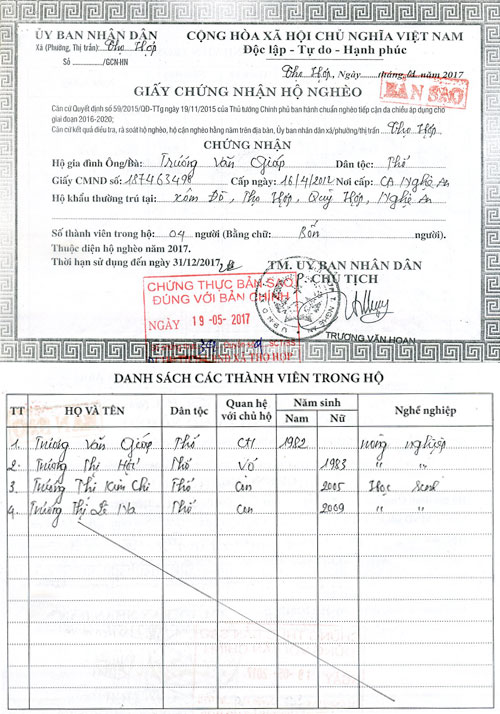 ỦY BAN NHÂN DÂN CỘNG HÒA XÃ HỘI CHỦ NGHĨA VIỆT NAM
Xã (Phường, Thị trấn): Thọ Hợp Độc lập - Tự do - Hạnh phúc
Số ....../GCN-HN
Thọ Hợp, Ngày......tháng 01 năm 2017
BẢN SAO
GIẤY CHỨNG NHẬN HỘ NGHÈO
Căn cứ Quyết định số 59/2015/QĐ-TTg ngày 19/11/2015 của Thủ tướng Chính phủ ban hành chuẩn nghèo tiếp cận đa chiều áp dụng cho
giai đoạn 2016-2020;
Căn cứ kết quả điều tra, rà soát hộ nghèo, hộ cận nghèo hằng năm trên địa bàn, Ủy ban nhân dân xã/phường/thị trấn Thọ Hợp
CHỨNG NHẬN
Hộ gia đình Ông/Bà: Trương Văn Giáp Dân tộc: Thổ
Giấy CMND số: 187463498 Cấp ngày: 16/4/2012 Nơi cấp: CA Nghệ An
Hộ khẩu thường trú tại: xóm Đò, Thọ Hợp, Quỳ Hợp, Nghệ An
Số thành viên trong hộ: 04 người (Bằng chữ: Bốn người).
Thuộc diện hộ nghèo năm 2017.
Thời hạn sử dụng đến ngày 31/12/2017
TM. ỦY BAN NHÂN DÂN
CHỦ TỊCH
CHỨNG THỰC BẢN SAO
ĐÚNG VỚI BẢN CHÍNH
NGÀY 19-05-2017
TRƯƠNG VĂN HOAN
DANH SÁCH CÁC THÀNH VIÊN TRONG HỘ
TT HỌ VÀ TÊN Dân tộc Quan hệ với chủ hộ Năm sinh Nghề nghiệp
Nam Nữ
1. Trương Văn Giáp Thổ CH 1982 nông nghiệp
2. Trương Thị Thổ Vợ 1983 " "
3 Trương Thị Kim Chi Thổ con 2005 Học sinh
4. Trương Thị Lê Na Thổ con 2009 " "